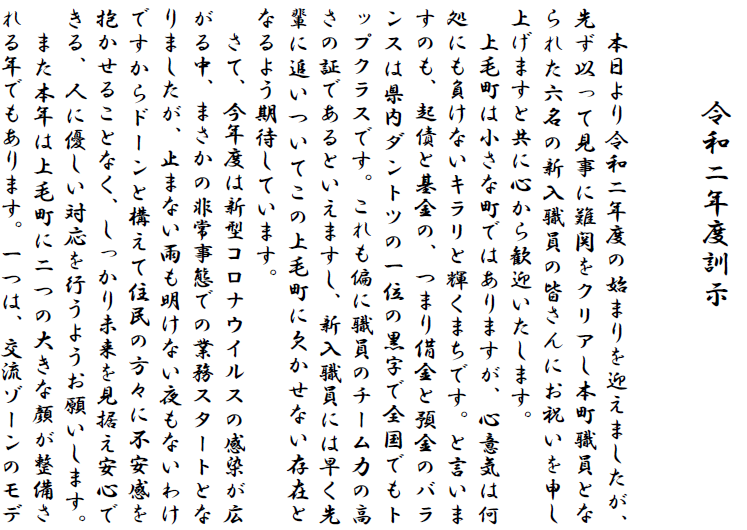 令和二年度訓示
本日より令和二年度の始まりを迎えましたが、
先ず以って見事に難関をクリアし本町職員とな
られた六名の新入職員の皆さんにお祝いを申し
上げますと共に心から歓迎いたします。
上毛町は小さな町ではありますが、心意気は何
処にも負けないキラリと輝くまちです。と言いま
すのも、起債と基金の、つまり借金と預金のバラ
ンスは県内ダントツの一位の黒字で全国でもト
ップクラスです。これも偏に職員のチーム力の高
さの証であるといえますし、新入職員には早く先
輩に追いついてこの上毛町に欠かせない存在と
なるよう期待しています。
さて、今年度は新型コロナウイルスの感染が広
がる中、まさかの非常事態での業務スタートとな
りましたが、止まない雨も明けない夜もないわけ
ですからドーンと構えて住民の方々に不安感を
抱かせることなく、しっかり未来を見据え安心で
きる、人に優しい対応を行うようお願いします。
また本年は上毛町に二つの大きな顔が整備さ
れる年でもあります。一つは、交流ゾーンのモデ